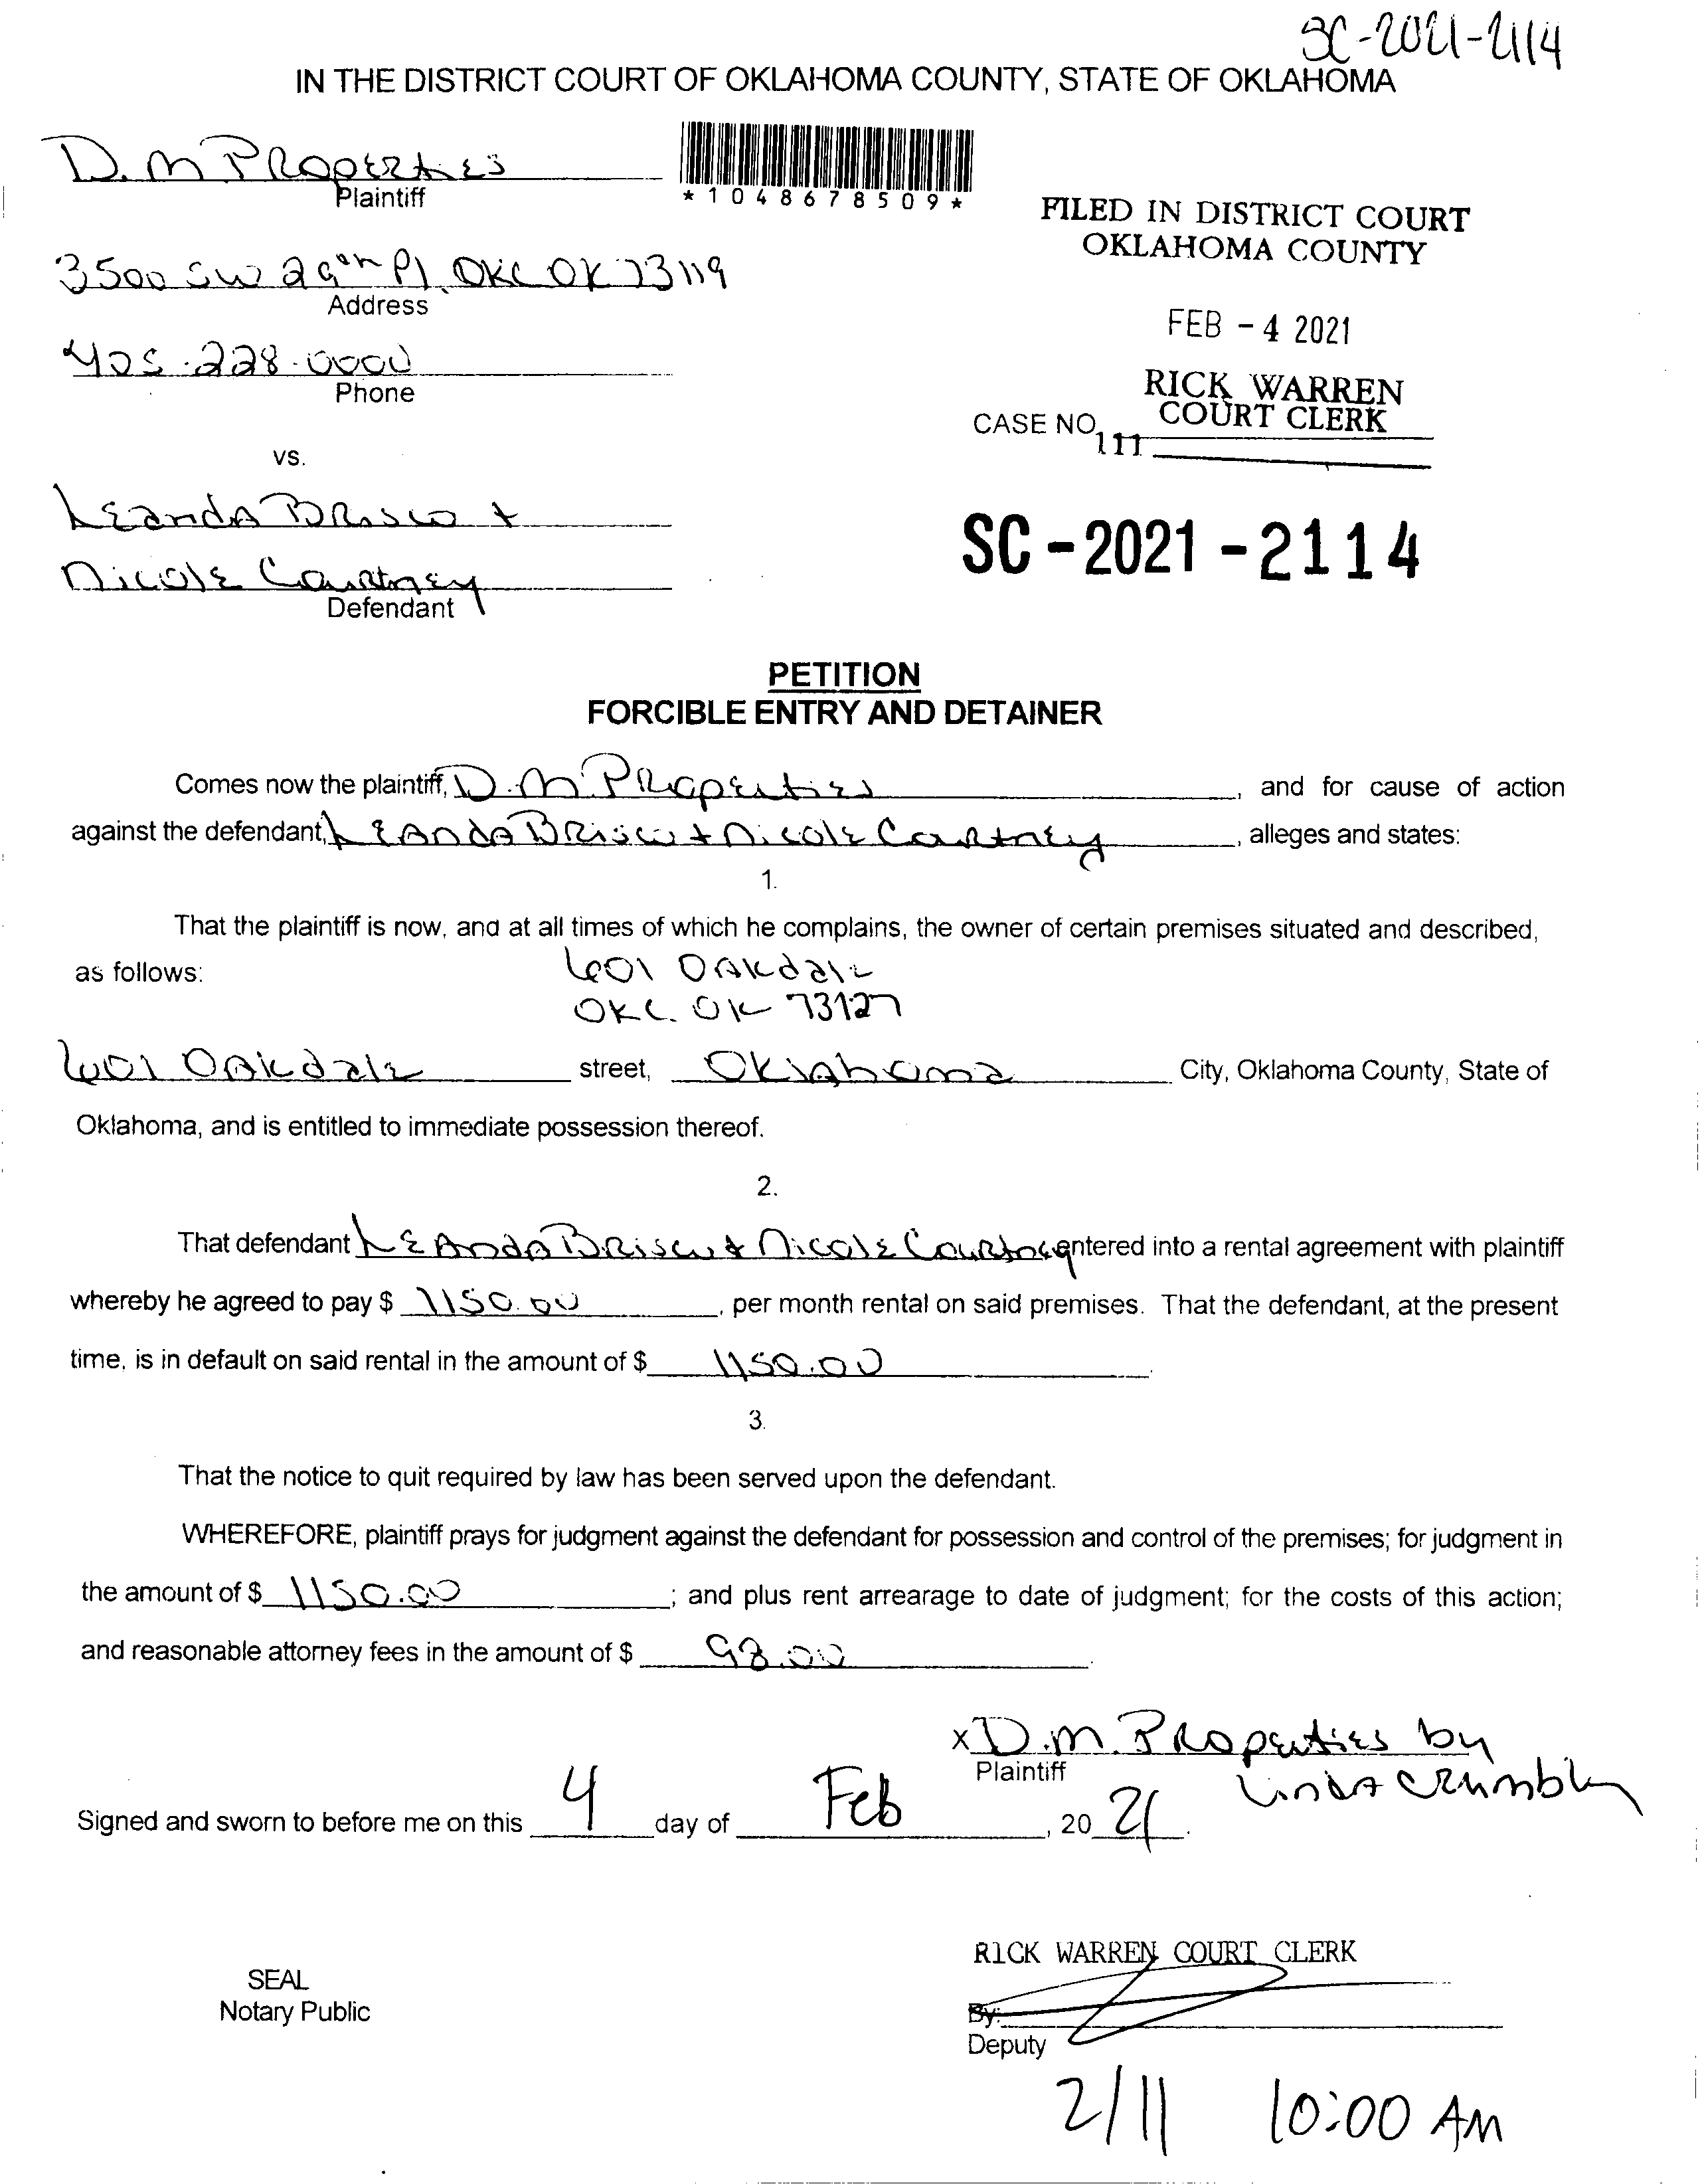 SC-2021-2114
IN THE DISTRICT COURT OF OKLAHOMA COUNTY, STATE OF OKLAHOMA
D.M Properties
Plaintiff
*1048678509*
FILED IN DISTRICT COURT
OKLAHOMA COUNTY
3500 SW 29th Pl. OKC OK 73119
Address
FEB - 4 2021
405-228-0000
Phone
RICK WARREN
COURT CLERK
CASE NO.
111
vs.
Leanda Brisco +
Nicole Courtney
Defendant
SC - 2021 - 2114
PETITION
FORCIBLE ENTRY AND DETAINER
Comes now the plaintiff, D.M. Properties, and for cause of action
against the defendant, Leanda Brisco + Nicole Courtney, alleges and states:
1.
That the plaintiff is now, and at all times of which he complains, the owner of certain premises situated and described,
as follows: 601 Oakdale
OKC. OK 73127
601 Oakdale street, Oklahoma City, Oklahoma County, State of
Oklahoma, and is entitled to immediate possession thereof.
2.
That defendant Leanda Brisco + Nicole Courtney entered into a rental agreement with plaintiff
whereby he agreed to pay $ 1150.00, per month rental on said premises. That the defendant, at the present
time, is in default on said rental in the amount of $ 1150.00.
3.
That the notice to quit required by law has been served upon the defendant.
WHEREFORE, plaintiff prays for judgment against the defendant for possession and control of the premises; for judgment in
the amount of $ 1150.00; and plus rent arrearage to date of judgment; for the costs of this action;
and reasonable attorney fees in the amount of $ 98.00.
x D.M. Properties by
Plaintiff
Linda Crumbly
Signed and sworn to before me on this 4 day of Feb, 20 21.
RICK WARREN COURT CLERK
SEAL
Notary Public
By:
Deputy
2/11 10:00 AM